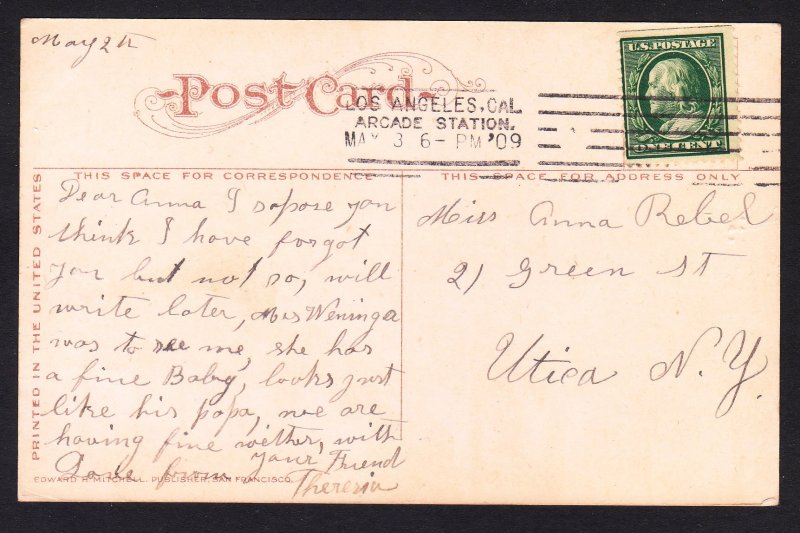 May 2th
Post Card
U.S. POSTAGE
ONE CENT
LOS ANGELES, CAL.
ARCADE STATION.
MAY 3 6-PM '09
THIS SPACE FOR CORRESPONDENCE
THIS SPACE FOR ADDRESS ONLY
PRINTED IN THE UNITED STATES
Dear Anna I sopose you
think I have forgot
you but not so, will
write later, Mrs Weninga
was to see me, she has
a fine Baby, looks just
like his papa, we are
having fine wether, with
Love from your Friend
Theresia
Miss Anna Rebel
21 Green St
Utica N.Y.
EDWARD H. MITCHELL, PUBLISHER, SAN FRANCISCO.